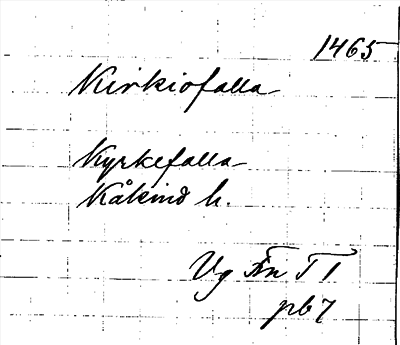 1465
Kirkiofalla
Kyrkefalla
Kåkind h.
Vg Fn T 1
pb 7